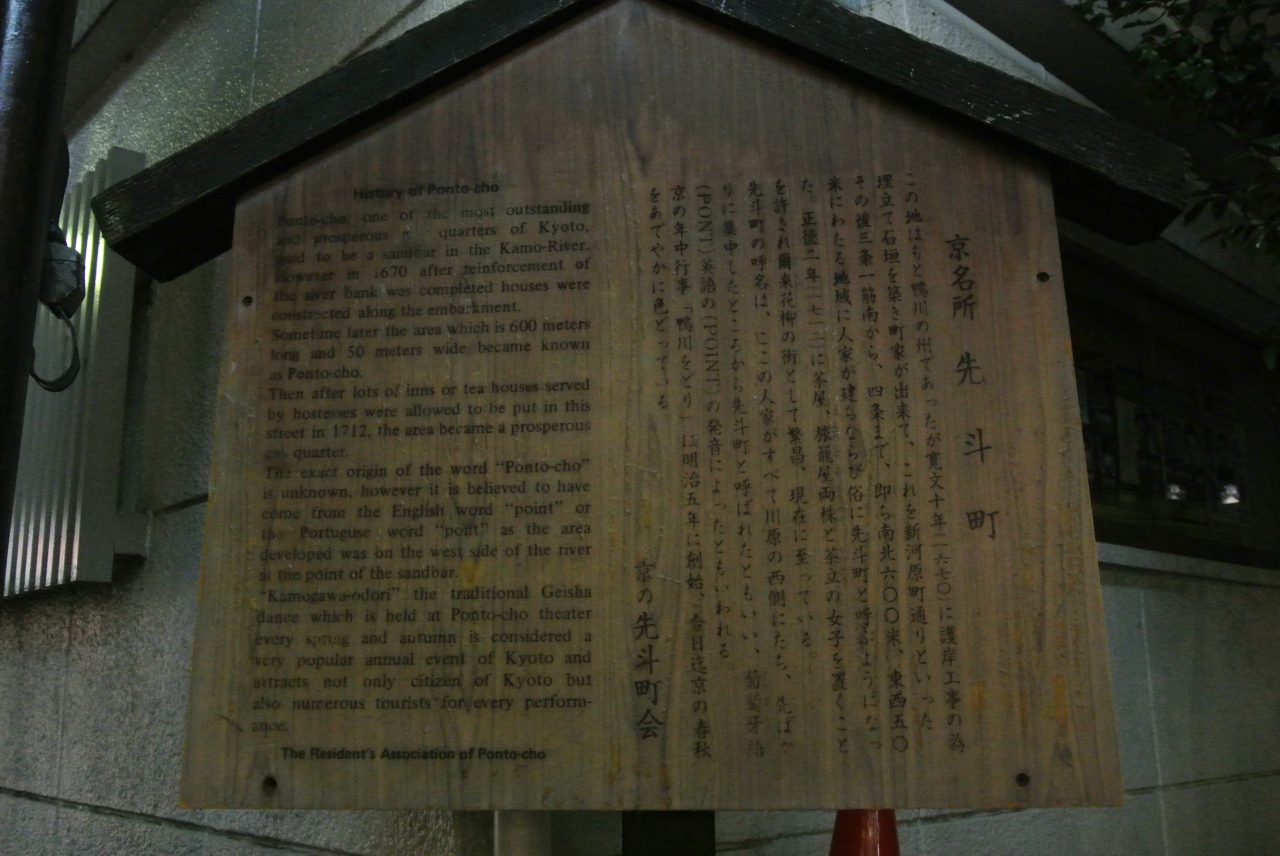 History of Ponto-cho
Ponto-cho, one of the most outstanding
and prosperous quarters of Kyoto,
used to be a sandbar in the Kamo-River.
However in 1670 after reinforcement of
the river bank was completed houses were
constructed along the embarkment.
Sometime later the area which is 600 meters
long and 50 meters wide became known
as Ponto-cho.
Then after lots of inns or tea houses served
by hostesses were allowed to be put in this
street in 1712, the area became a prosperous
gay quarter.
The exact origin of the word “Ponto-cho”
is unknown, however it is believed to have
come from the English word “point” or
the Portuguse word “pont” as the area
developed was on the west side of the river
at the point of the sandbar.
“Kamogawa-odori” the traditional Geisha
dance which is held at Ponto-cho theater
every spring and autumn is considered a
very popular annual event of Kyoto and
attracts not only citizen of Kyoto but
also numerous tourists for every perform-
ance.
The Resident's Association of Ponto-cho
京名所 先斗町
この地はもと鴨川の州であったが寛文十年(一六七〇)に護岸工事の為
埋立て石垣を築き町家が出来て、これを新河原町通りといった
その後三条一筋南から、四条まで、即ち南北六〇〇米、東西五〇
米にわたる地域に人家が建ちならび俗に先斗町と呼ぶようになっ
た。正徳二年(一七一二)に茶屋、旅籠屋両株と茶立の女子を置くこと
を許され爾来花柳の街として繁昌、現在に至っている。
先斗町の呼名は、ここの人家がすべて川原の西側にたち、先ばか
りに集中したところから先斗町と呼ばれたともいい、葡萄牙語
(PONT)英語の(POINT)の発音によったともいわれる。
京の年中行事「鴨川をどり」は明治五年に創始、今日迄京の春秋
をあでやかに色どっている
京の先斗町会